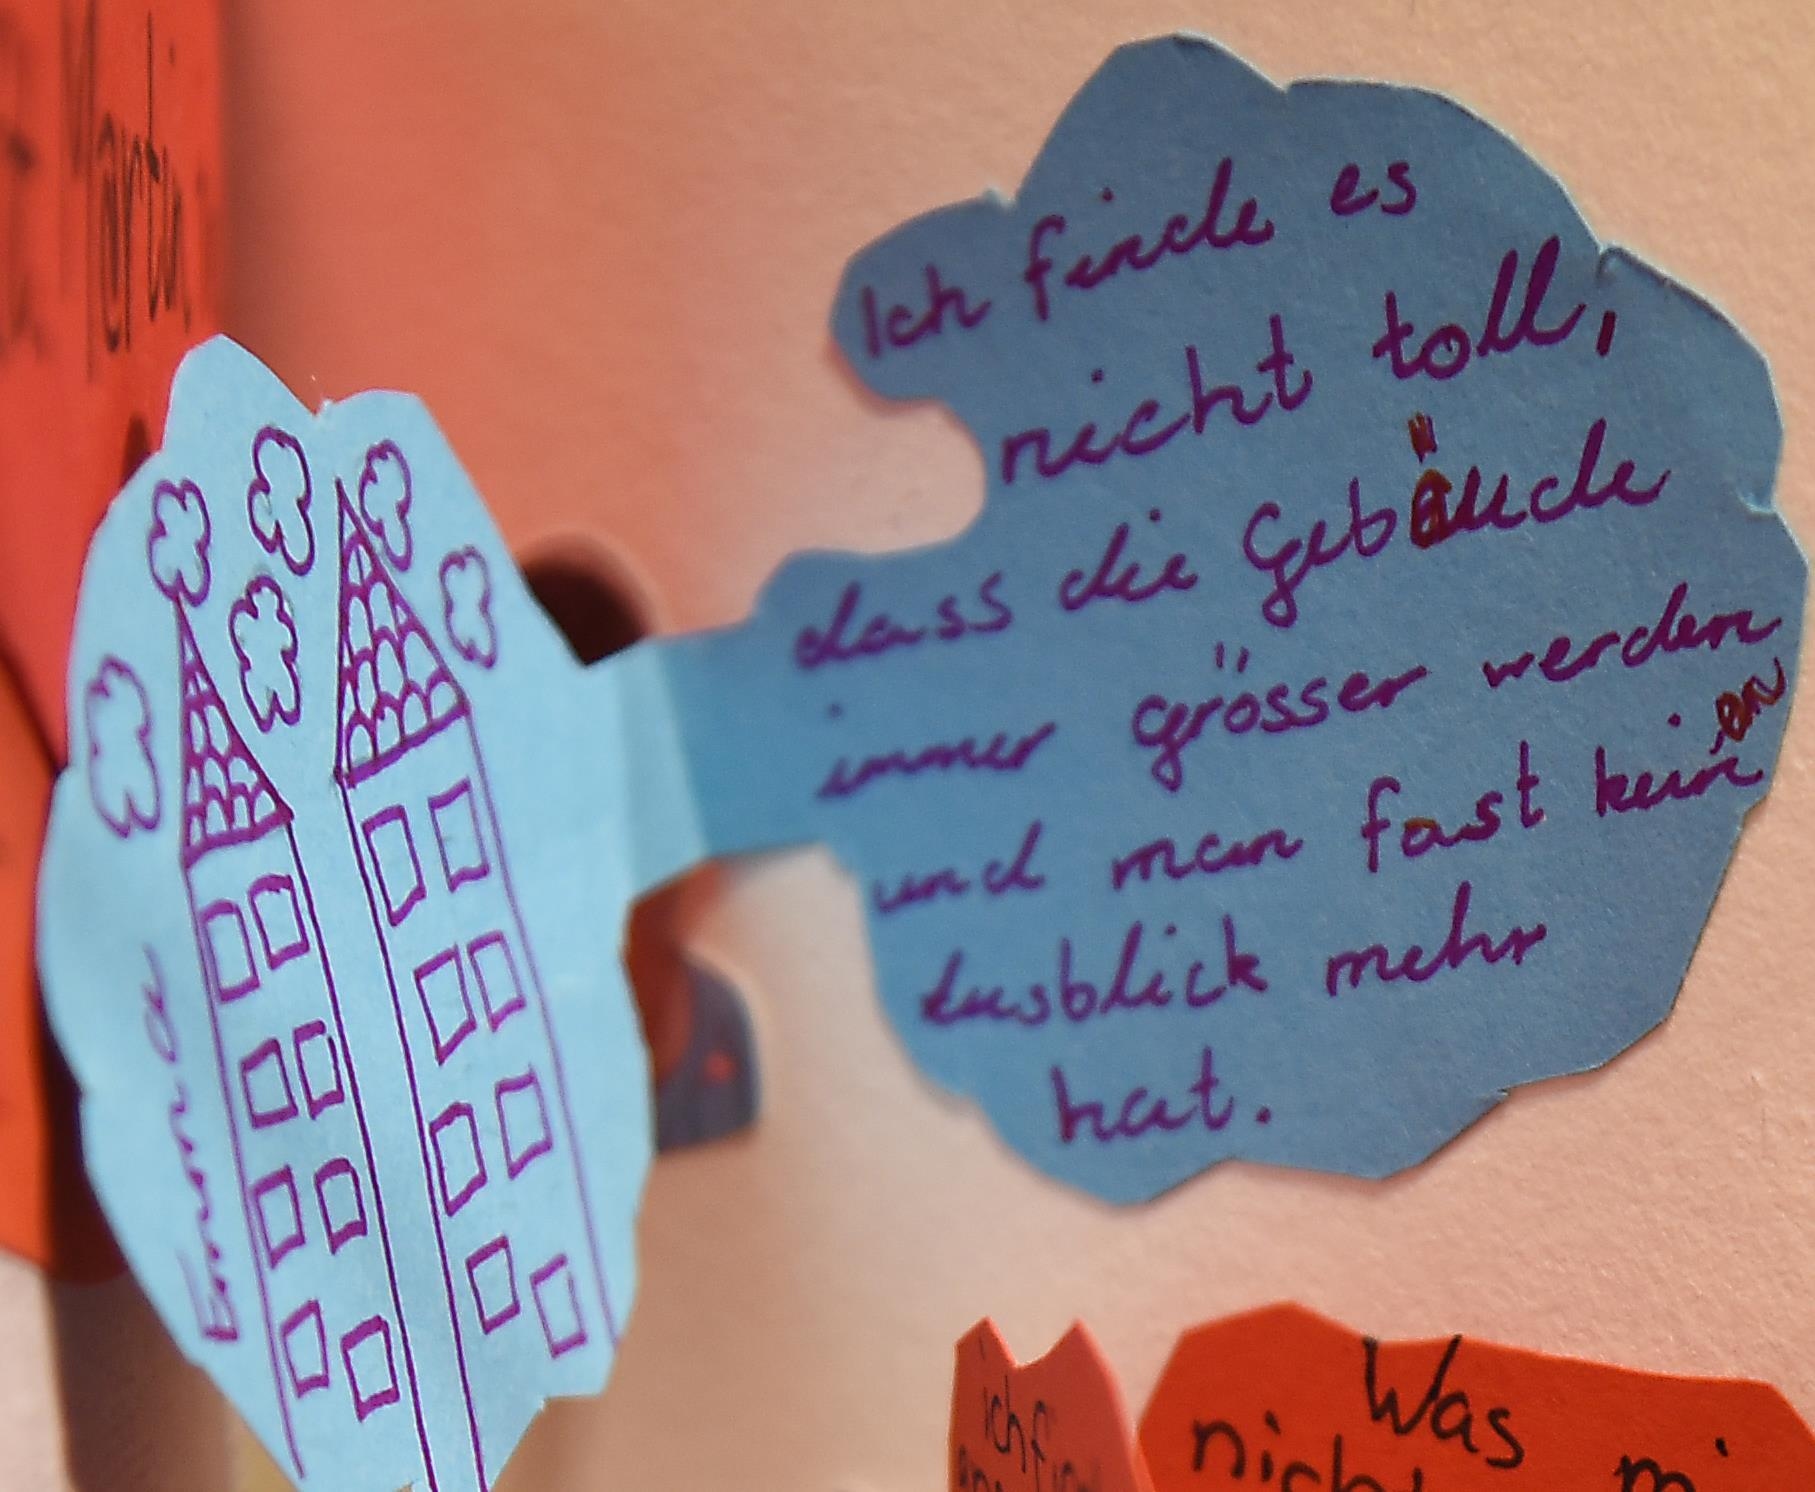 Martin
Emma
Ich finde es
nicht toll,
dass die Gebäude
immer grösser werden
und man fast keinen
Ausblick mehr
hat.
ich find
Was